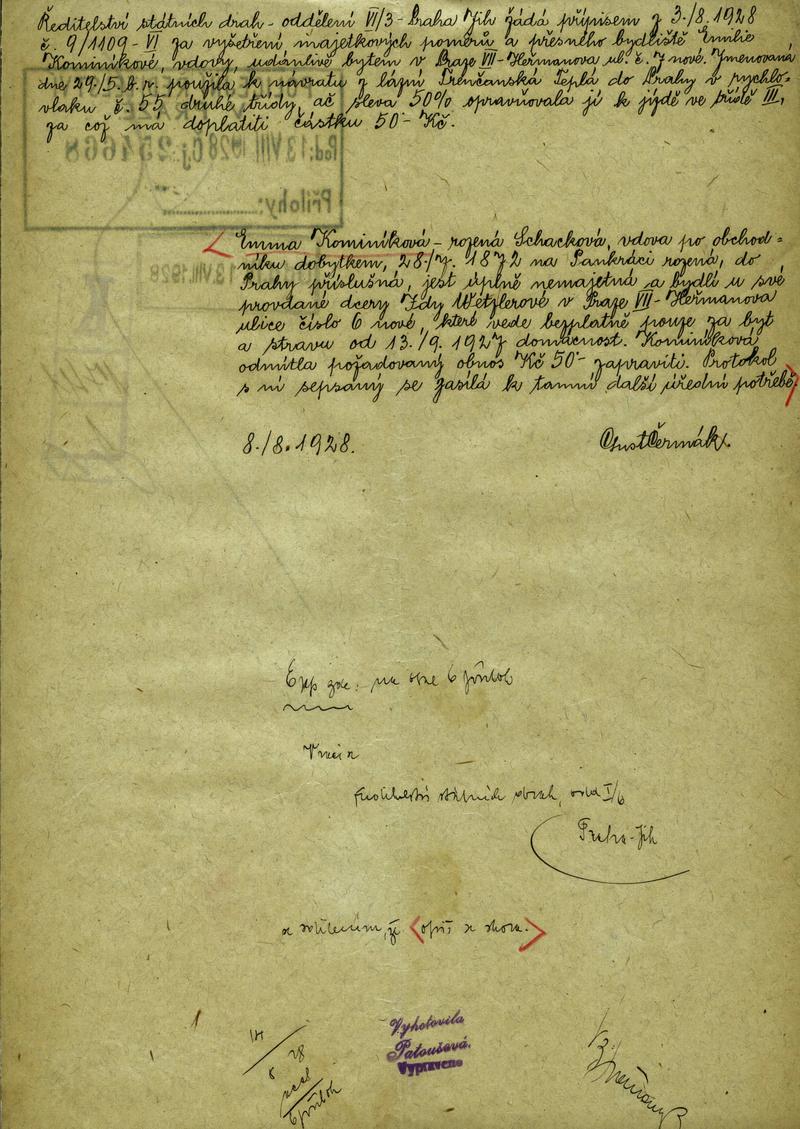 Ředitelství státních drah - oddělení VI/3 - Praha Jih žádá přípisem z 3./8. 1928
č. 9/1109 - VI za vyšetření majetkových poměrů a přesného bydliště Emilie
Kominíkové, vdovy, udánlivě bytem v Praze VII - Heřmanova ul. č. 7 nové. Jmenovaná
dne 29./5. t. r. použila k návratu z lázní Trenčanská Teplá do Prahy v rychlo-
vlaku č. 55 druhé třídy, ač sleva 50% opravňovala ji k jízdě ve třídě III,
za což má doplatiti částku 50·- Kč.
Pod: 13. VIII. 1928 Čj. 254668
Přílohy:
Emma Kominíková - rozená Schacková, vdova po obchod=
níku dobytkem, 28./7. 1872 na Pankráci rozená, do
Prahy příslušná, jest úplně nemajetná a bydlí u své
provdané dcery Idy Wetzlerové v Praze VII - Heřmanova
ulice číslo 6 nové, které vede bezplatně pouze za byt
a stravu od 13./9. 1927 domácnost. Kominíková
odmítla požadovaný obnos Kč 50·- zapraviti. Protokol
s ní sepsaný se zasílá k tamní další úřední potřebě.
8./8. 1928.
Čermák
6 příloh
státních drah, odd. I/6
Praha-Jih
a sdělením, že < opis z shora. >
Vyhotovila
Patoušová.
Vypraveno
6 příloh